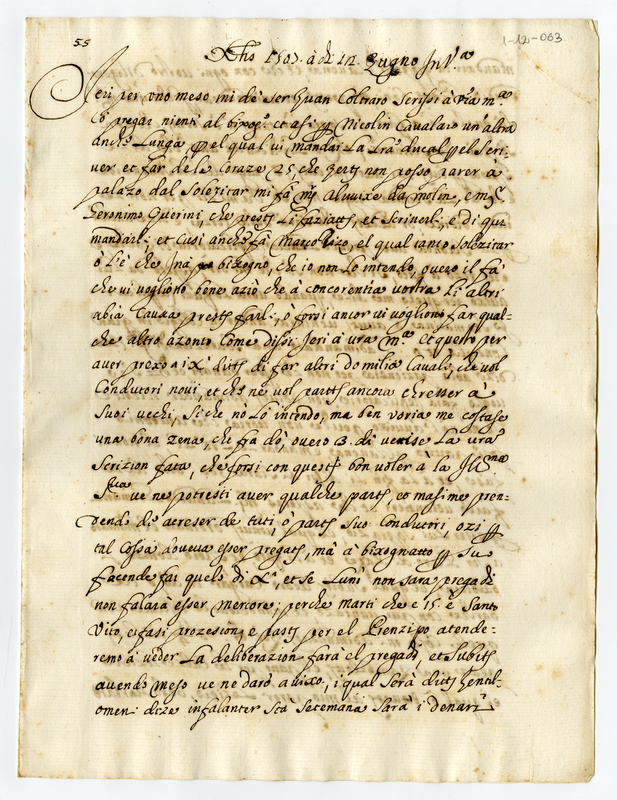 55
1-12-063
Xhs 1507. à dì 12 Zugno In V.ª
Ieri per uno meso mi dè ser Zuan Coltraro scrissi à vrã m.ª
pregar nienti al bixog.º et asi Nicolin Cavalaro un'altra
anch.º Lunga, el qual vi mandai La Lrã ducal el Scri-
ver et far dele Coraze 25, che Zerti non posso parer à
palazo dal Solezitar mi fà Alvuixe da molin, e
Geronimo Querini, che Li faziatti, et Scriverli, e di qui
mandarli; et Cusi anch.º fà Marco Rizo, el qual tanto Solezitar
ò L'è che Inà bixogno, che io non Lo intendo, overo il fà
che vi vogliono bene aziò che à concorentia vostra Li altri
abia Causa farli, ò forsi ancor vi vogliono far qual-
che altro azonto Come dissi Ieri à vrã m.ª et questo per
aver prexo a i X diti di far altri do milia Cavali, che vol
Condutori novi, et che ne vol ancora chresser à
Suoi vechi, Si che no Lo intendo, ma ben voria me costase
una bona zena, che frà dò, overo 3. dì venise La vrã
Scrizion fata, che forsi con questo bon voler à la Ill.ma
S.ria ve ne potresti aver qualche parte, eo masime pren-
dendo di acreser de tuti, ò parte Suo Condutori, ozi
tal Cossa doveva esser pregati, mà à bixognatto Sue
facende far quelo di X.i, et se Luni non sarà pregadi
non falarà esser mercore; perche marti che è 15. è Santo
Vito, e fasi prozesion, e pasto per el Prenzipo atende-
remo à veder La deliberazion farà el pregadi, et Subito
avendo meso ve ne darò avixo, i qual Sorà ditti Zentil-
omeni dize infalanter Stà Setemana Sarà i denari